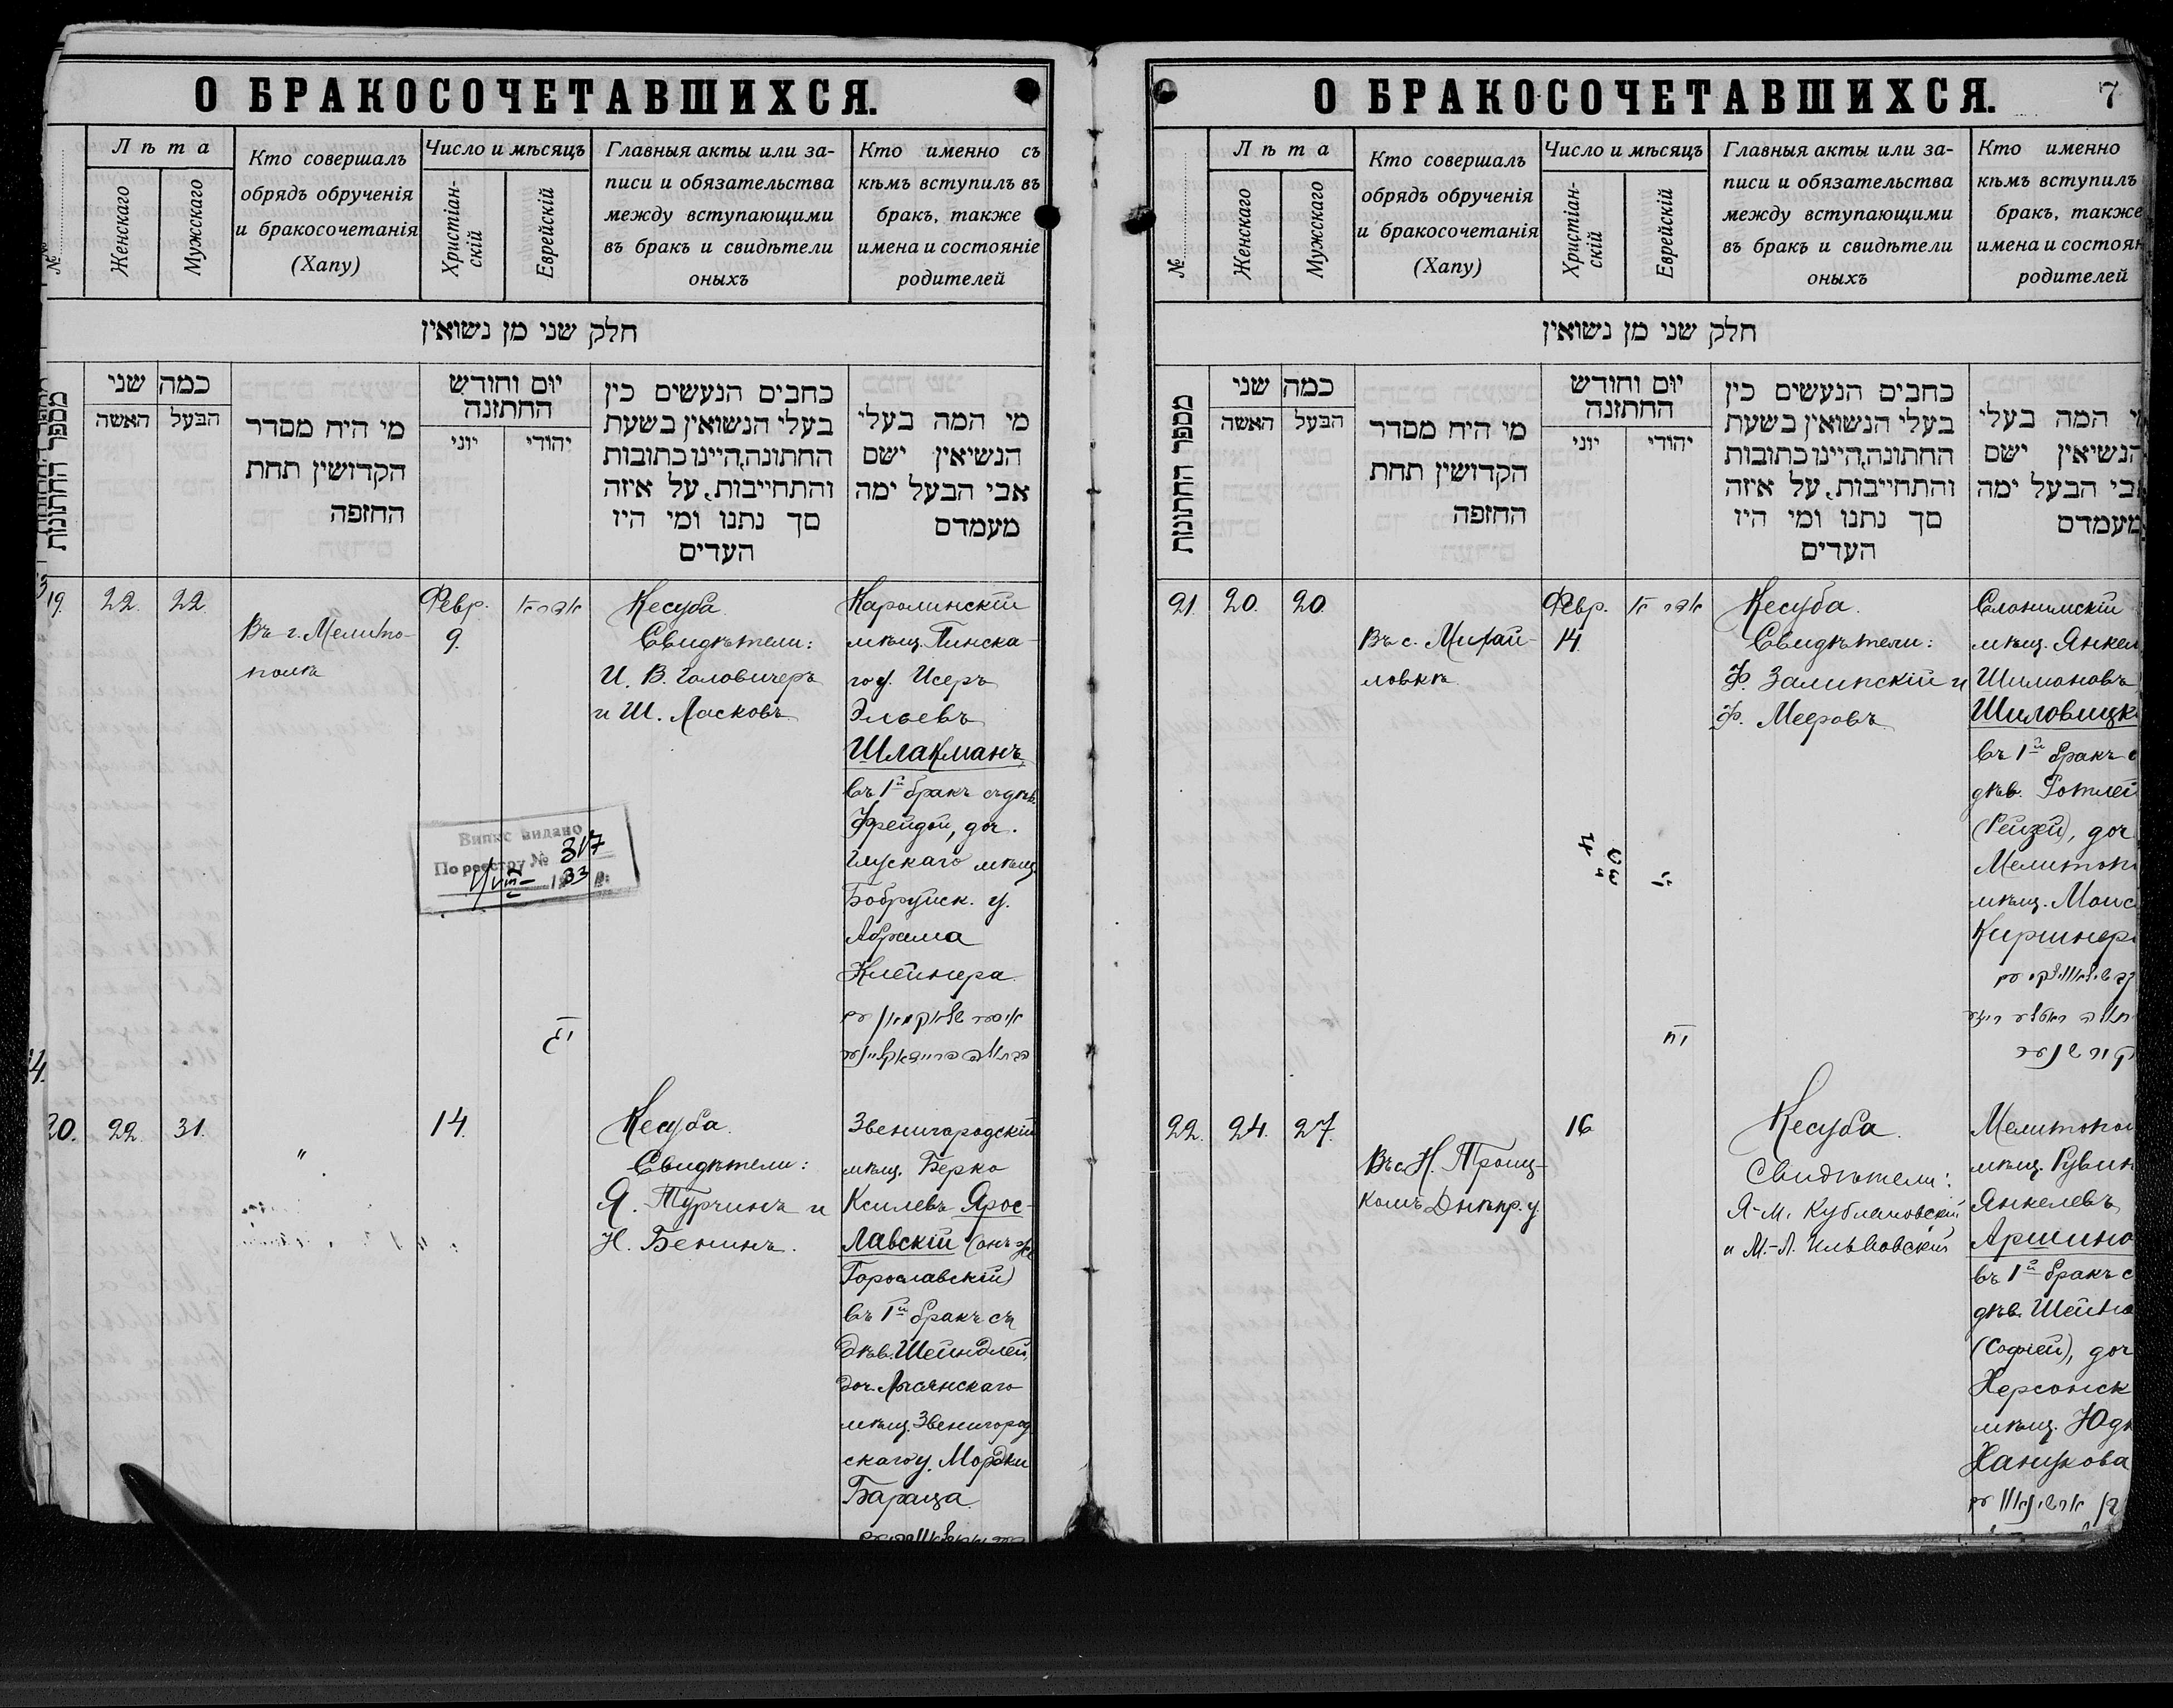 О БРАКОСОЧЕТАВШИХСЯ.
№
Лѣта
Женскаго
Мужскаго
Кто совершалъ
обрядъ обрученія
и бракосочетанія
(Хапу)
Число и мѣсяцъ
Христіан-
скій
Еврейскій
Главныя акты или за-
писи и обязательства
между вступающими
въ бракъ и свидѣтели
оныхъ
Кто именно съ
кѣмъ вступилъ въ
бракъ, также
имена и состояніе
родителей
חלק שני מן נשואין
מספר החתונות
כמה שני
האשה
הבעל
מי היח מסדר
הקדושין תחת
החופה
יום וחודש
החתונה
יוני
יהודי
כתבים הנעשים כין
בעלי הנשואין בשעת
החתונה, היינו כתובות
והתחייבות, על איזה
סך נתנו ומי היו
העדים
מי המה בעלי
הנשיאין ישם
אבי הבעל ימה
מעמדם
19. 22. 22.
Въ г. Мелито-
полѣ
Февр.
9.
יג
Кесуба.
Свидѣтели:
И. В. Головичеръ
и Ш. Ласковъ
Каролинскій
мѣщ. Пинска-
го у. Исеръ
Эльевъ
Шлакманъ
въ 1й бракъ съ дѣв.
Фрейдой, доч.
Глускаго мѣщ.
Бобруйск. у.
Абрама
Клейнера.
Випис видано
По реестру № 317
20. 22. 31.
"
14.
Кесуба.
Свидѣтели:
Я. Турчинъ и
Н. Бенинъ.
Звенигородскій
мѣщ. Берко
Ксилевъ Ярос-
лавскій (онъ же
Горославскій)
въ 1й бракъ съ
дѣв. Шейндлей,
доч. Лысянскаго
мѣщ. Звенигород
скаго у. Мордки
Бараца.
О БРАКОСОЧЕТАВШИХСЯ.
7
№
Лѣта
Женскаго
Мужскаго
Кто совершалъ
обрядъ обрученія
и бракосочетанія
(Хапу)
Число и мѣсяцъ
Христіан-
скій
Еврейскій
Главныя акты или за-
писи и обязательства
между вступающими
въ бракъ и свидѣтели
оныхъ
Кто именно
кѣмъ вступилъ
бракъ, также
имена и состоян
родителей
חלק שני מן נשואין
מספר החתונות
כמה שני
האשה
הבעל
מי היח מסדר
הקדושין תחת
החופה
יום וחודש
החתונה
יוני
יהודי
כתבים הנעשים כין
בעלי הנשואין בשעת
החתונה, היינו כתובות
והתחייבות, על איזה
סך נתנו ומי היו
העדים
המה בעלי
הנשיאין ישם
אבי הבעל ימה
מעמדם
21. 20. 20.
Въ с. Михай-
ловкѣ
Февр.
14.
יח
Кесуба.
Свидѣтели:
Ф. Залипскій и
Ф. Мееровъ
Слонимскій
мѣщ. Янкел
Шимоновъ
Шиловицк
въ 1й бракъ с
дѣв. Ротлей
(Рейзей), доч
Мелитоп
мѣщ. Моис
Киршнер
22. 24. 27.
Въ с. Н. Троиц-
комъ Днѣпр. у.
16
Кесуба.
Свидѣтели:
Я-М. Кублановскій
и М.-Л. Ильвовскій
Мелитопол
мѣщ. Рувин
Янкелевъ
Аршино
въ 1й бракъ с
дѣв. Шейно
(Софіей), доч
Херсонск
мѣщ. Юдк
Ханукова